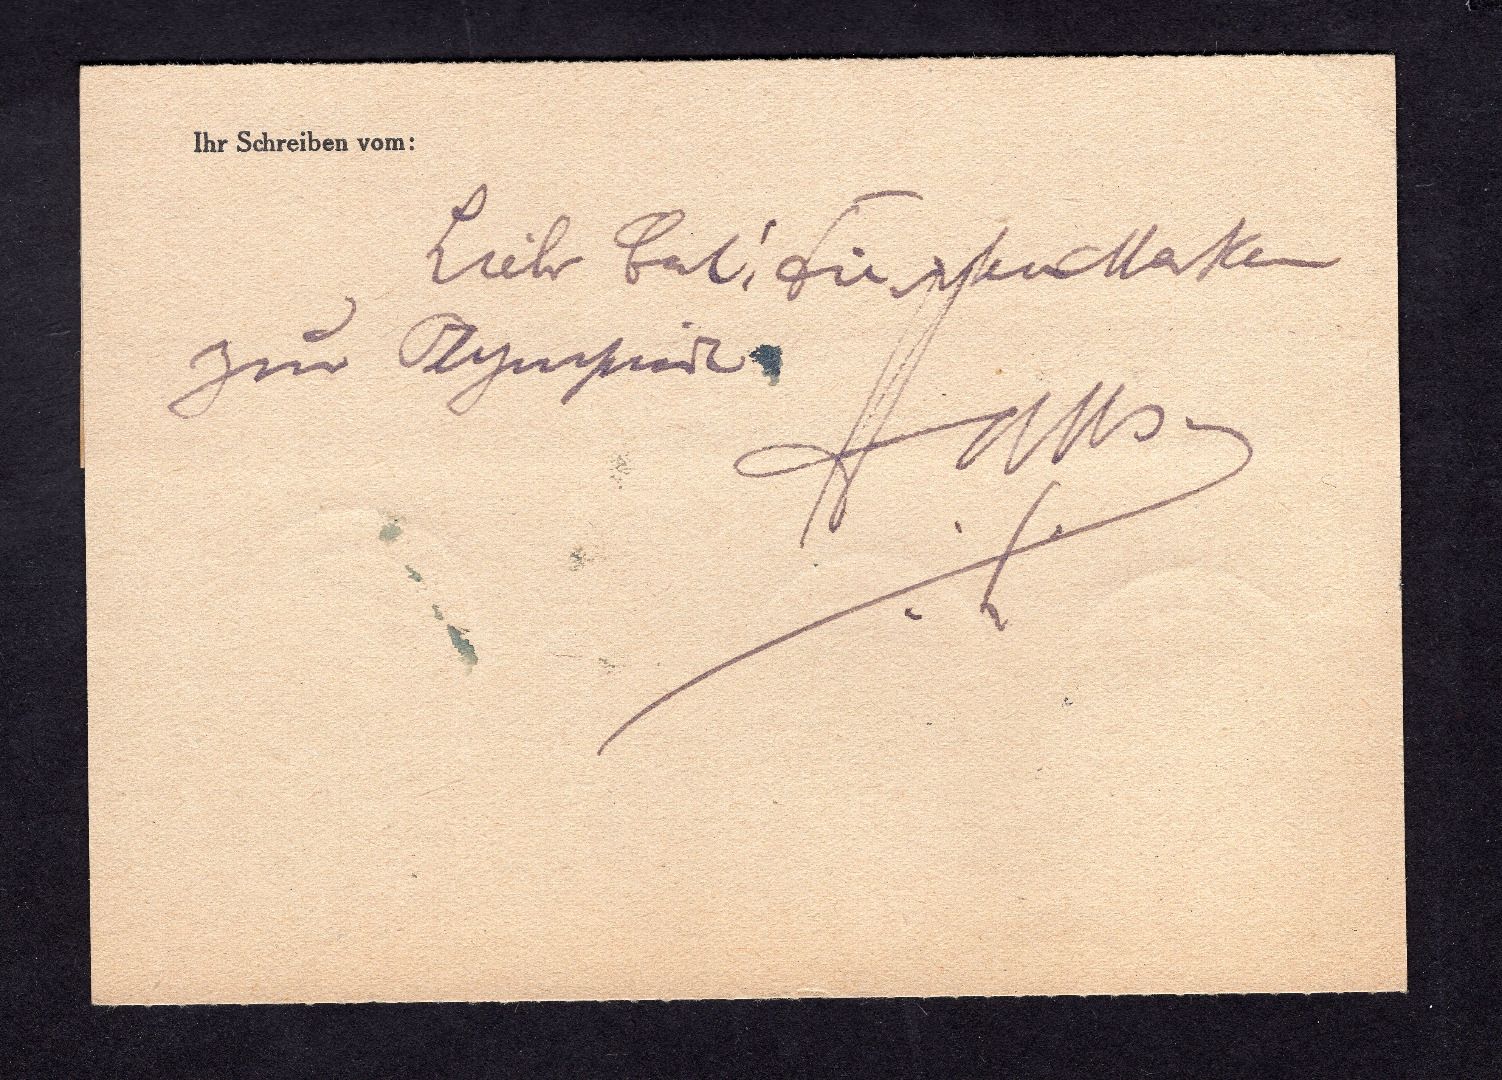 Ihr Schreiben vom:
Lieber Carl! Die Marken
zur Olympiade